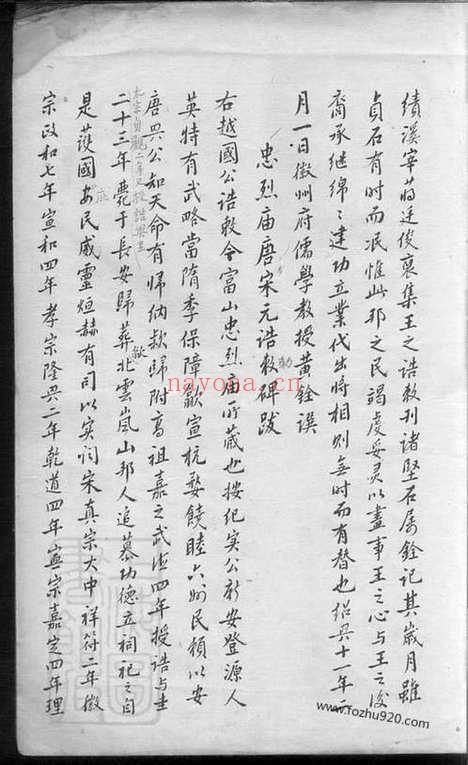 績溪宰蒋廷俊裒集王之诰敕刊诸堅石屬銓记其歲月雖
貞石有时而泯惟此邦之民谒虔妥灵以盡事王之心与王之後
裔承继绵〻建功立業代出将相则無时而有替也绍興十一年二
月一日徽州府儒學教授黄銓谟
忠烈庙唐宋元诰敕碑跋
右越國公诰敕今富山忠烈庙所藏也按纪实公新安登源人
英特有武略當隋季保障歙宣杭婺饒睦六州民頼以安
唐興公知天命有归纳款歸附高祖嘉之武德四年授诰与
太宗貞觀二年又授诰
二十三年薨于長安歸葬北雲嵐山邦人追慕功德立祠祀之自
歙
是護國安民威靈烜赫有司以实闻宋真宗大中祥符二年徽
宗政和七年宣和四年孝宗隆興二年乾道四年寧宗嘉定四年理
nayona.cn
www.fozhu920.com